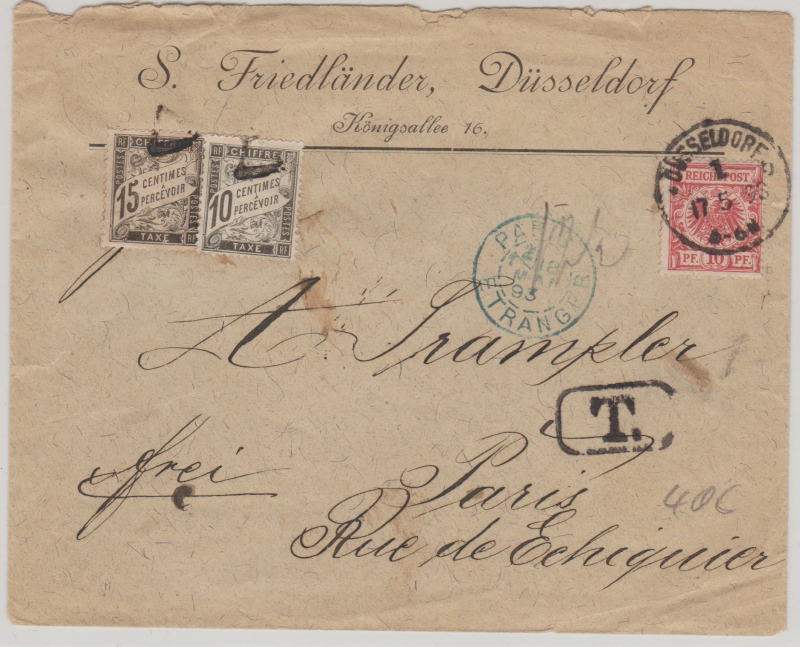 S. Friedländer, Düsseldorf
Königsallee 16.
RF CHIFFRE
POSTES
15 CENTIMES
À PERCEVOIR
TAXE
RF CHIFFRE RF
POSTES POSTES
10 CENTIMES
À PERCEVOIR
TAXE
DÜSSELDORF
1
17 5
REICHSPOST
PF. 10 PF.
PARIS
93
ETRANGER
A. Trampler
T.
frei
Paris
40c
Rue de Echiquier